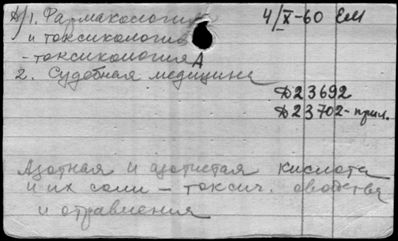 А/1. Фармакология 4/X-60 ЕМ
и токсикология
- токсикология А
2. Судебная медицина
Д23692
Д23702-прил.
Азотная и азотистая кислота
и их соли - токсич. свойства
и отравления